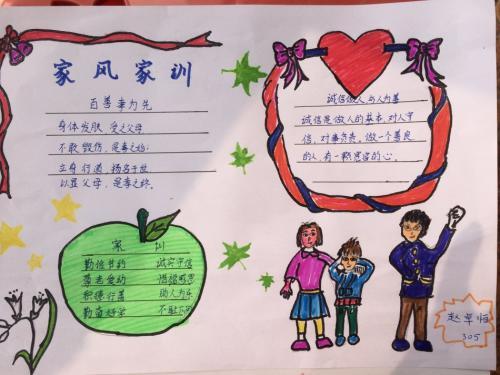 家风家训
百善孝为先
身体发肤，受之父母
不敢毁伤，是孝之始；
立身行道，扬名于世
以显父母，是孝之终。
诚信做人 与人为善
诚信是做人的基本，对人守
信，对事负责。做一个善良
的人，有一颗宽容的心。
家 训
勤俭节约 诚实守信
尊老爱幼
积德行善 助人为乐
勤奋好学 不耻下问
305